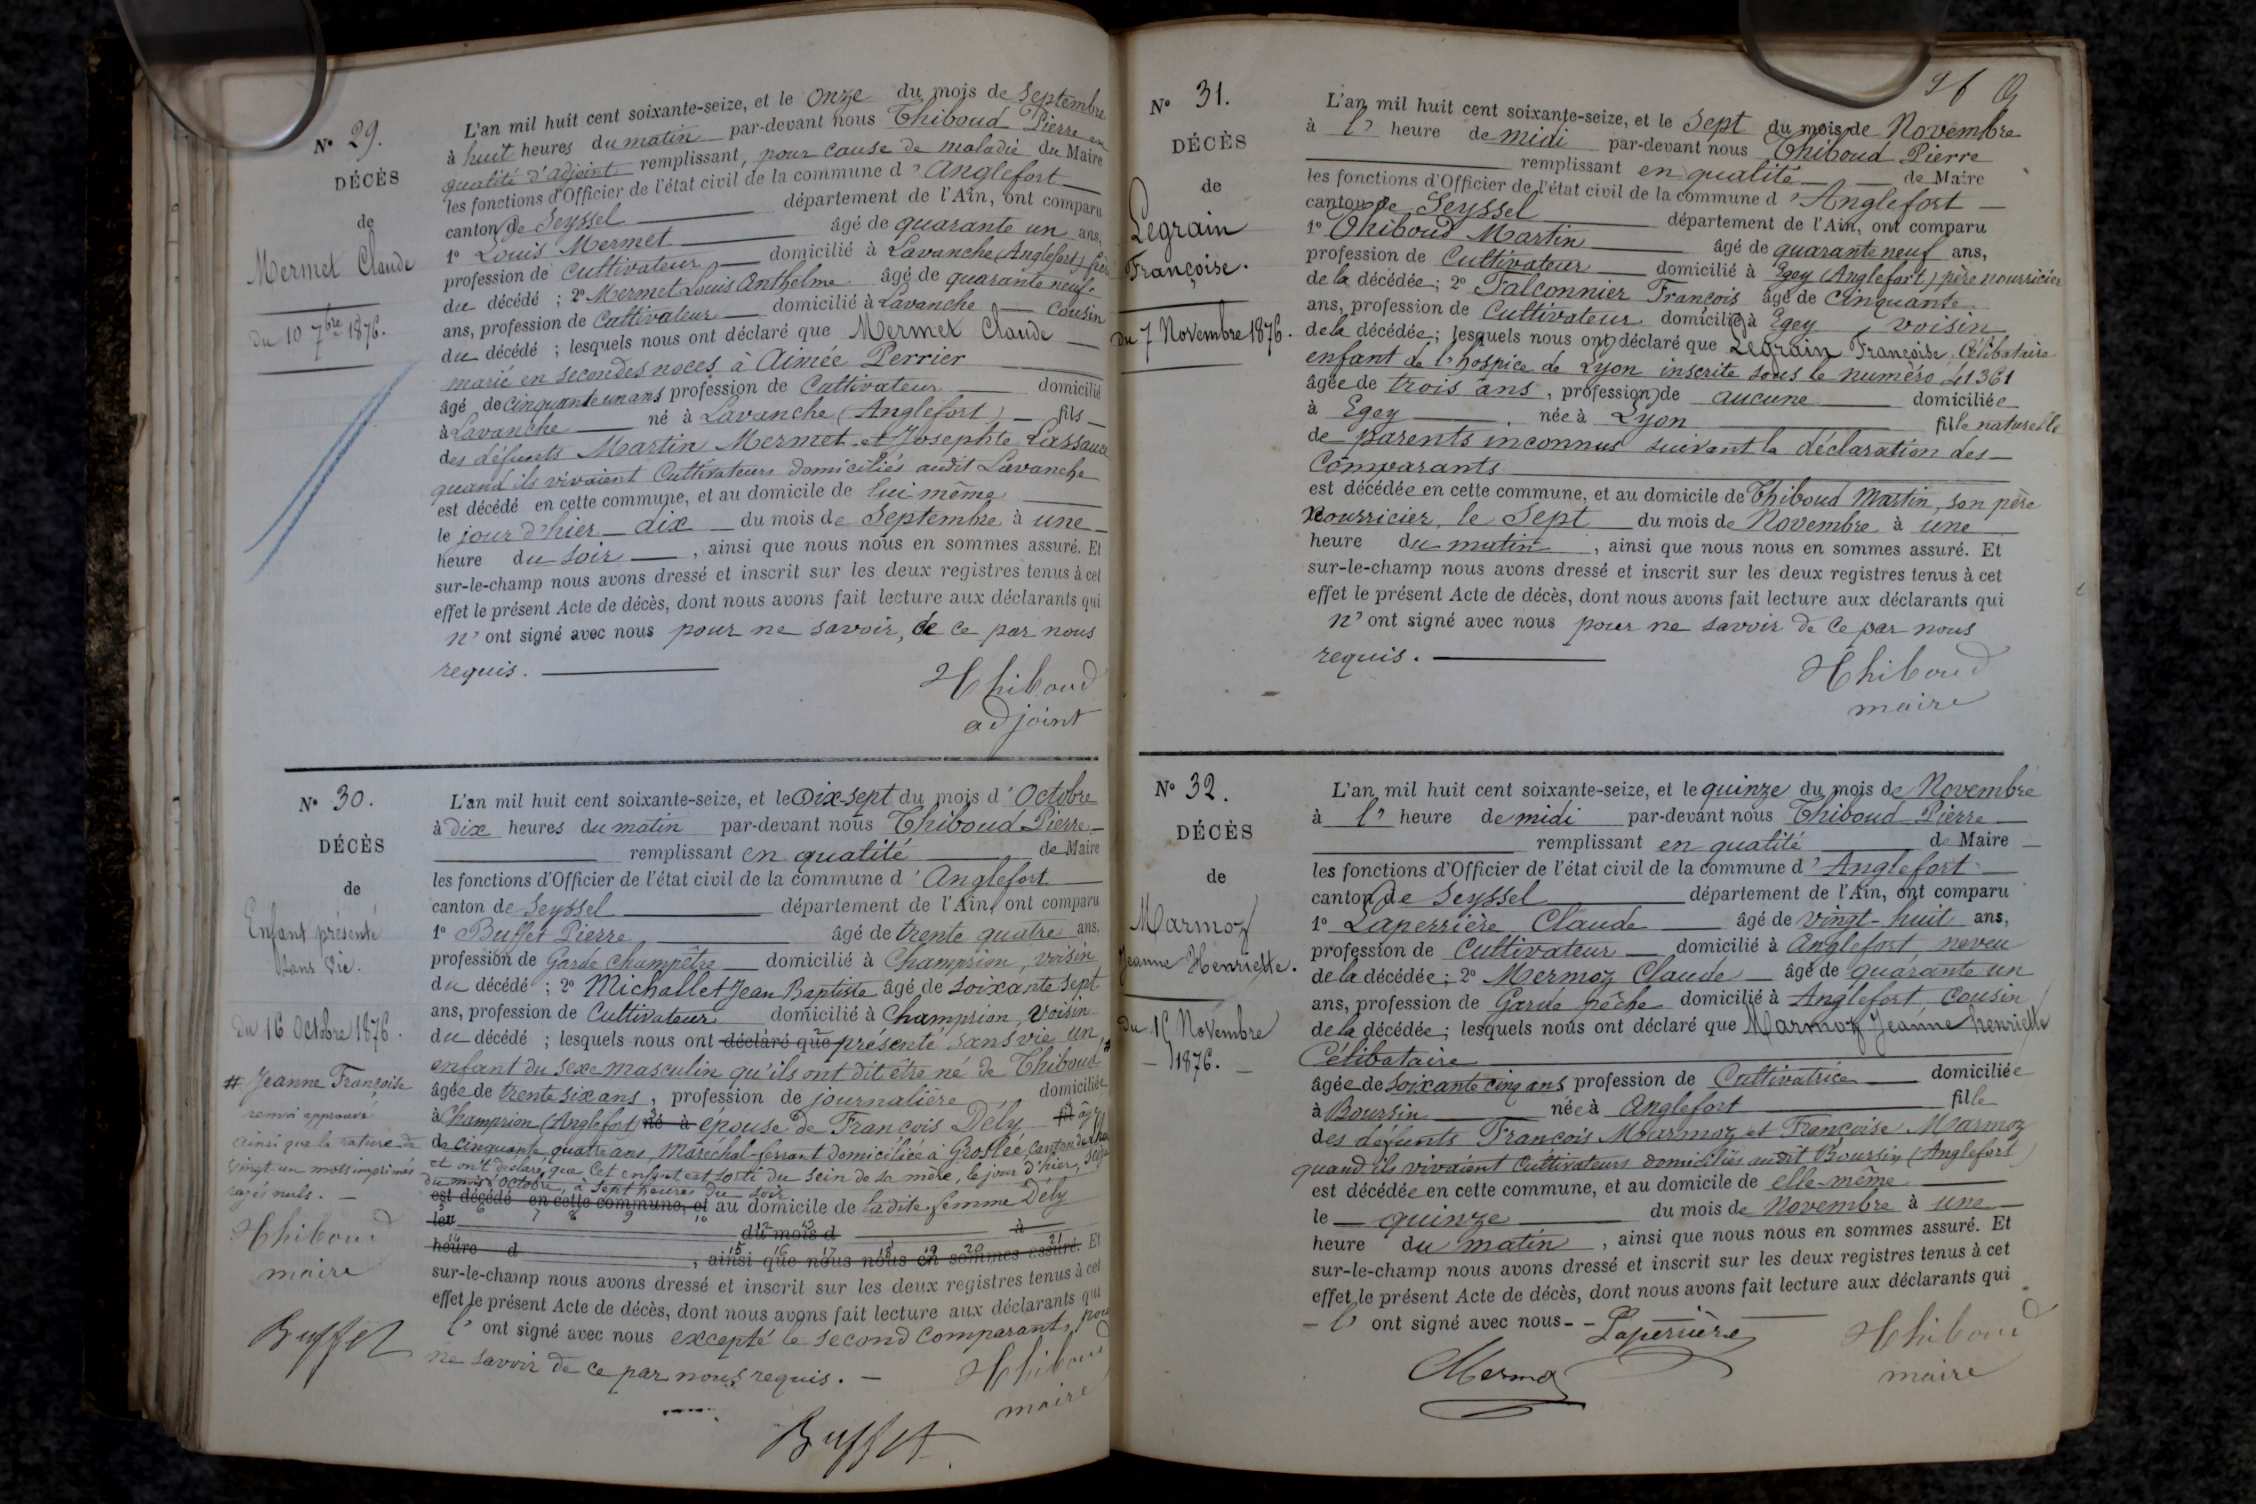 N° 29.
DÉCÈS
de
Mermet Claude
du 10 7bre 1876.
L'an mil huit cent soixante-seize, et le onze du mois de Septembre
à huit heures du matin par-devant nous Thiboud Pierre en
qualité d'adjoint remplissant, pour cause de maladie du Maire
les fonctions d'Officier de l'état civil de la commune d'Anglefort
canton de Seyssel département de l'Ain, ont comparu
1° Louis Mermet âgé de quarante un ans,
profession de Cultivateur domicilié à Lavanche (Anglefort) frère
du décédé ; 2° Mermet Louis Anthelme âgé de quarante neuf
ans, profession de Cultivateur domicilié à Lavanche Cousin
du décédé ; lesquels nous ont déclaré que Mermet Claude
marié en secondes noces à Aimée Perrier
âgé de cinquante un ans profession de Cultivateur domicilié
à Lavanche né à Lavanche (Anglefort) fils
des défunts Martin Mermet et Josephte Lassauce
quand ils vivaient Cultivateurs domiciliés audit Lavanche
est décédé en cette commune, et au domicile de lui même
le jour d'hier dix du mois de Septembre à une
heure du soir, ainsi que nous nous en sommes assuré. Et
sur-le-champ nous avons dressé et inscrit sur les deux registres tenus à cet
effet le présent Acte de décès, dont nous avons fait lecture aux déclarants qui
n'ont signé avec nous pour ne savoir, de ce par nous
requis.
Thiboud
adjoint
N° 30.
DÉCÈS
de
Enfant présenté
sans vie.
du 16 Octobre 1876.
# Jeanne Françoise
renvoi approuvé
ainsi que la rature de
vingt un mots imprimés
rayés nuls.
Thiboud
maire
Buffet
L'an mil huit cent soixante-seize, et le Dix-sept du mois d'Octobre
à dix heures du matin par-devant nous Thiboud Pierre
remplissant en qualité de Maire
les fonctions d'Officier de l'état civil de la commune d'Anglefort
canton de Seyssel département de l'Ain, ont comparu
1° Buffet Pierre âgé de trente quatre ans.
profession de Garde champêtre domicilié à Champrion, voisin
du décédé ; 2° Michallet Jean Baptiste âgé de soixante sept
ans, profession de Cultivateur domicilié à Champrion, Voisin
du décédé ; lesquels nous ont déclaré que présenté sans vie un
enfant du sexe masculin qu'ils ont dit être né de Thiboud #
âgée de trente six ans, profession de journalière, domiciliée
à Champrion (Anglefort) né à épouse de François Dély âgé
de cinquante quatre ans, Maréchal-ferrant domicilié à Groslée, Canton de
et ont déclaré que cet enfant est sorti du sein de sa mère, le jour d'hier, seize
du mois d'Octobre, à sept heures du soir
est décédé en cette commune, et au domicile de ladite femme Dély
le
du mois d à
heure d, ainsi que nous nous en sommes assuré. Et
sur-le-champ nous avons dressé et inscrit sur les deux registres tenus à cet
effet le présent Acte de décès, dont nous avons fait lecture aux déclarants qui
l'ont signé avec nous excepté le second comparant, pour
ne savoir de ce par nous requis.
Thiboud
maire
Buffet
N° 31.
DÉCÈS
de
Legrain
Françoise.
du 7 Novembre 1876.
L'an mil huit cent soixante-seize, et le Sept du mois de Novembre
à l' heure de midi par-devant nous Thiboud Pierre
remplissant en qualité de Maire
les fonctions d'Officier de l'état civil de la commune d'Anglefort
canton de Seyssel département de l'Ain, ont comparu
1° Thiboud Martin âgé de quarante neuf ans,
profession de Cultivateur domicilié à Egey (Anglefort) père nourricier
de la décédée ; 2° Falconnier François âgé de cinquante
ans, profession de Cultivateur domicilié à Egey voisin
de la décédée ; lesquels nous ont déclaré que Legrain Françoise, Célibataire
enfant de l'hospice de Lyon inscrite sous le numéro 41361
âgée de trois ans, profession de aucune domiciliée
à Egey née à Lyon fille naturelle
de parents inconnus suivant la déclaration des
Comparants
est décédée en cette commune, et au domicile de Thiboud Martin, son père
nourricier, le Sept du mois de Novembre à une
heure du matin, ainsi que nous nous en sommes assuré. Et
sur-le-champ nous avons dressé et inscrit sur les deux registres tenus à cet
effet le présent Acte de décès, dont nous avons fait lecture aux déclarants qui
n'ont signé avec nous pour ne savoir de ce par nous
requis.
Thiboud
maire
N° 32.
DÉCÈS
de
Marmoz
Jeanne Henriette.
du 15 Novembre
1876.
L'an mil huit cent soixante-seize, et le quinze du mois de Novembre
à l' heure de midi par-devant nous Thiboud Pierre
remplissant en qualité de Maire
les fonctions d'Officier de l'état civil de la commune d'Anglefort
canton de Seyssel département de l'Ain, ont comparu
1° Laperrière Claude âgé de vingt-huit ans,
profession de Cultivateur domicilié à Anglefort neveu
de la décédée ; 2° Mermoz Claude âgé de quarante un
ans, profession de Garde pêche domicilié à Anglefort, Cousin
de la décédée ; lesquels nous ont déclaré que Marmoz Jeanne henriette
Célibataire
âgée de soixante cinq ans profession de Cultivatrice domiciliée
à Boursin née à Anglefort fille
des défunts François Marmoz et Françoise Marmoz
quand ils vivaient Cultivateurs domiciliés audit Boursin (Anglefort)
est décédée en cette commune, et au domicile de elle-même
le quinze du mois de Novembre à une
heure du matin, ainsi que nous nous en sommes assuré. Et
sur-le-champ nous avons dressé et inscrit sur les deux registres tenus à cet
effet le présent Acte de décès, dont nous avons fait lecture aux déclarants qui
l'ont signé avec nous
Laperrière
Thiboud
maire
Mermoz